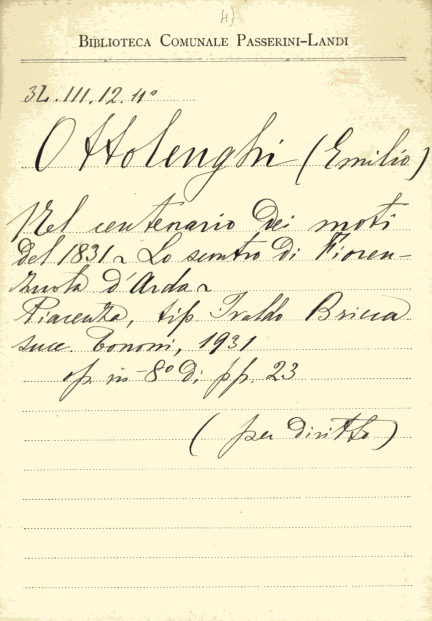 4)
BIBLIOTECA COMUNALE PASSERINI-LANDI
3L.III.12.11°
Ottolenghi (Emilio)
Nel centenario dei moti
del 1831 ~ Lo scontro di Fioren-
zuola d'Arda ~
Piacenza, tip Ivaldo Bricca
succ. Tononi, 1931
op. in-8° di pp. 23
(per diritto)